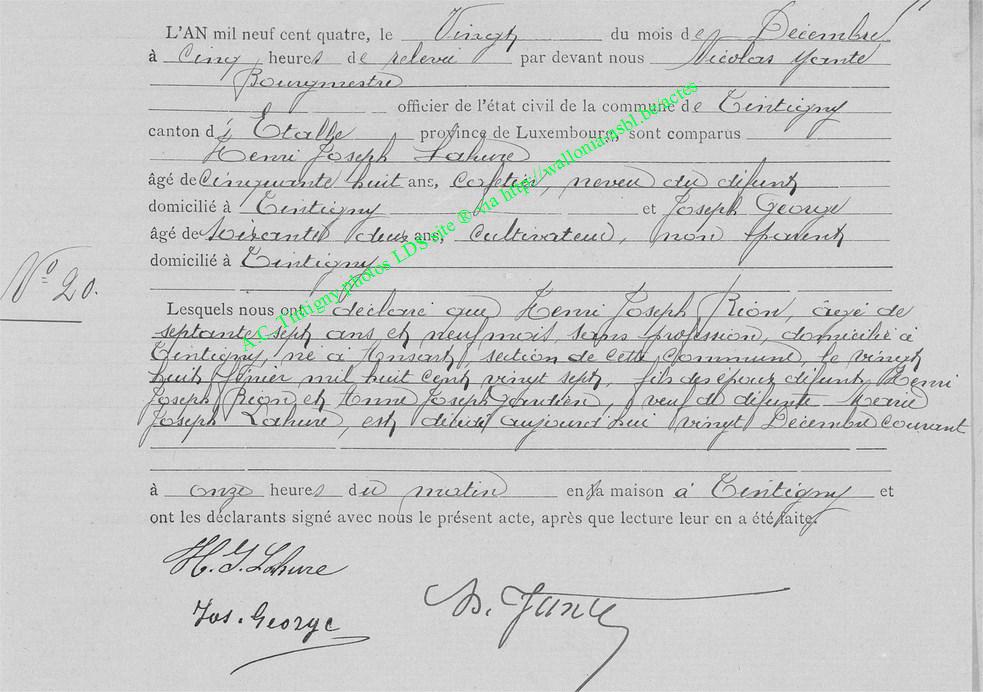 L'AN mil neuf cent quatre, le Vingt du mois de Décembre
à Cinq heures de relevée par devant nous Nicolas Yante
Bourgmestre
officier de l'état civil de la commune de Tintigny
canton d'Etalle province de Luxembourg, sont comparus
Henri Joseph Lahure
âgé de Cinquante huit ans, neveu du défunt
domicilié à Tintigny et Joseph George
âgé de soixante deux ans, Cultivateur, non parent
domicilié à Tintigny
N° 20.
Lesquels nous ont déclaré que Henri Joseph Rion, âgé de
septante sept ans et neuf mois, sans profession, domicilié à
Tintigny, né à Ansart, section de cette Commune, le vingt
huit Février mil huit cent vingt sept, fils des époux défunts Henri
Joseph Rion et Anne Joseph veuf de défunte Marie
Joseph Lahure, est décédé aujourd'hui vingt Décembre courant
à onze heures du matin en sa maison à Tintigny et
ont les déclarants signé avec nous le présent acte, après que lecture leur en a été faite.
H. J. Lahure
Jos. George
N. Yante
A.C. Tintigny photos LDS site ® via http://wallonia.asbl.be/actes